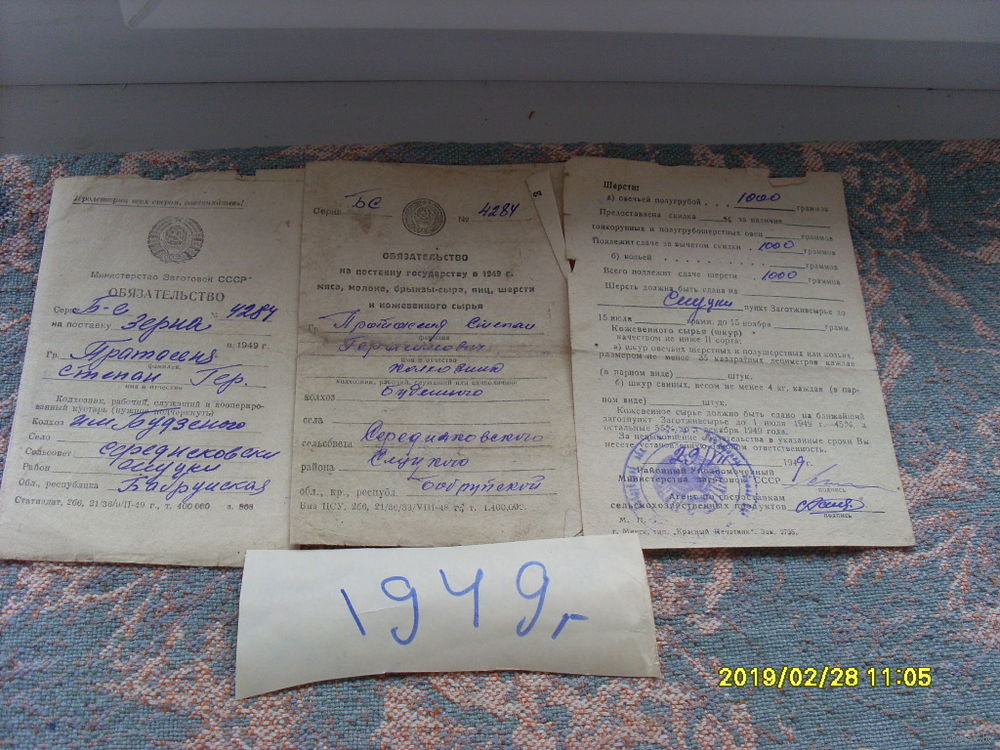 Пролетарии всех стран, соединяйтесь!
Министерство Заготовок СССР
ОБЯЗАТЕЛЬСТВО
Серия Б-С № 4284
на поставку зерна в 1949 г.
Гр. Пратасеня
фамилия,
Степан Гер.
имя и отчество
Колхозник, рабочий, служащий и коопериро-
ванный кустарь (нужное подчеркнуть)
Колхоз им. Будзеного
Село
Сельсовет
Район Слуцки
Обл., республика Бабруйская
Статиздат, 266, т. 400 000 з. 808
Серия БС № 4284
ОБЯЗАТЕЛЬСТВО
на поставку государству в 1949 г.
мяса, молока, брынзы-сыра, яиц, шерсти
и кожевенного сырья
Гр. Пратасеня Степан
фамилия
имя и отчество
колхозник, рабочий, служащий или единоличник
колхоз
села
сельсовета Середняковского
района Слуцкого
обл., кр., республ. Бобруйской
Виз ЦСУ, 266, т. 1.400.000.
Шерсти:
а) овечьей полугрубой . . . 1000 граммов
Предоставлена скидка % за наличие
тонкорунных и полугрубошерстных овец граммов
Подлежит сдаче за вычетом скидки . 1000 граммов
б) козьей . . . . . . . . граммов
Всего подлежит сдаче шерсти . 1000 граммов
Шерсть должна быть сдана на
Слуцки пункт Заготживсырье до
15 июля грамм. до 15 ноября грамм.
Кожевенного сырья (шкур)
качеством не ниже II сорта:
а) шкур овечьих шерстных и полушерстных или козьих,
размером не менее 35 квадратных дециметров каждая
(в парном виде) штук.
б) шкур свиных, весом не менее 4 кг, каждая (в пар-
ном виде) штук.
Кожевенное сырье должно быть сдано на ближайший
заготпункт Заготживсырье до 1 июля 1949 г. 45%, а
остальные 55% до декабря 1949 года.
За невыполнение обязательства в указанные сроки Вы
несете установленную законом ответственность.
29 1949 г.
Районный Уполномоченный
Министерства заготовок СССР
подпись
Агент по госпоставкам
сельскохозяйственных продуктов
подпись
М. П.
г. Минск, тип. "Красный Печатник". Зак. 2735.
1949 г
2019/02/28 11:05